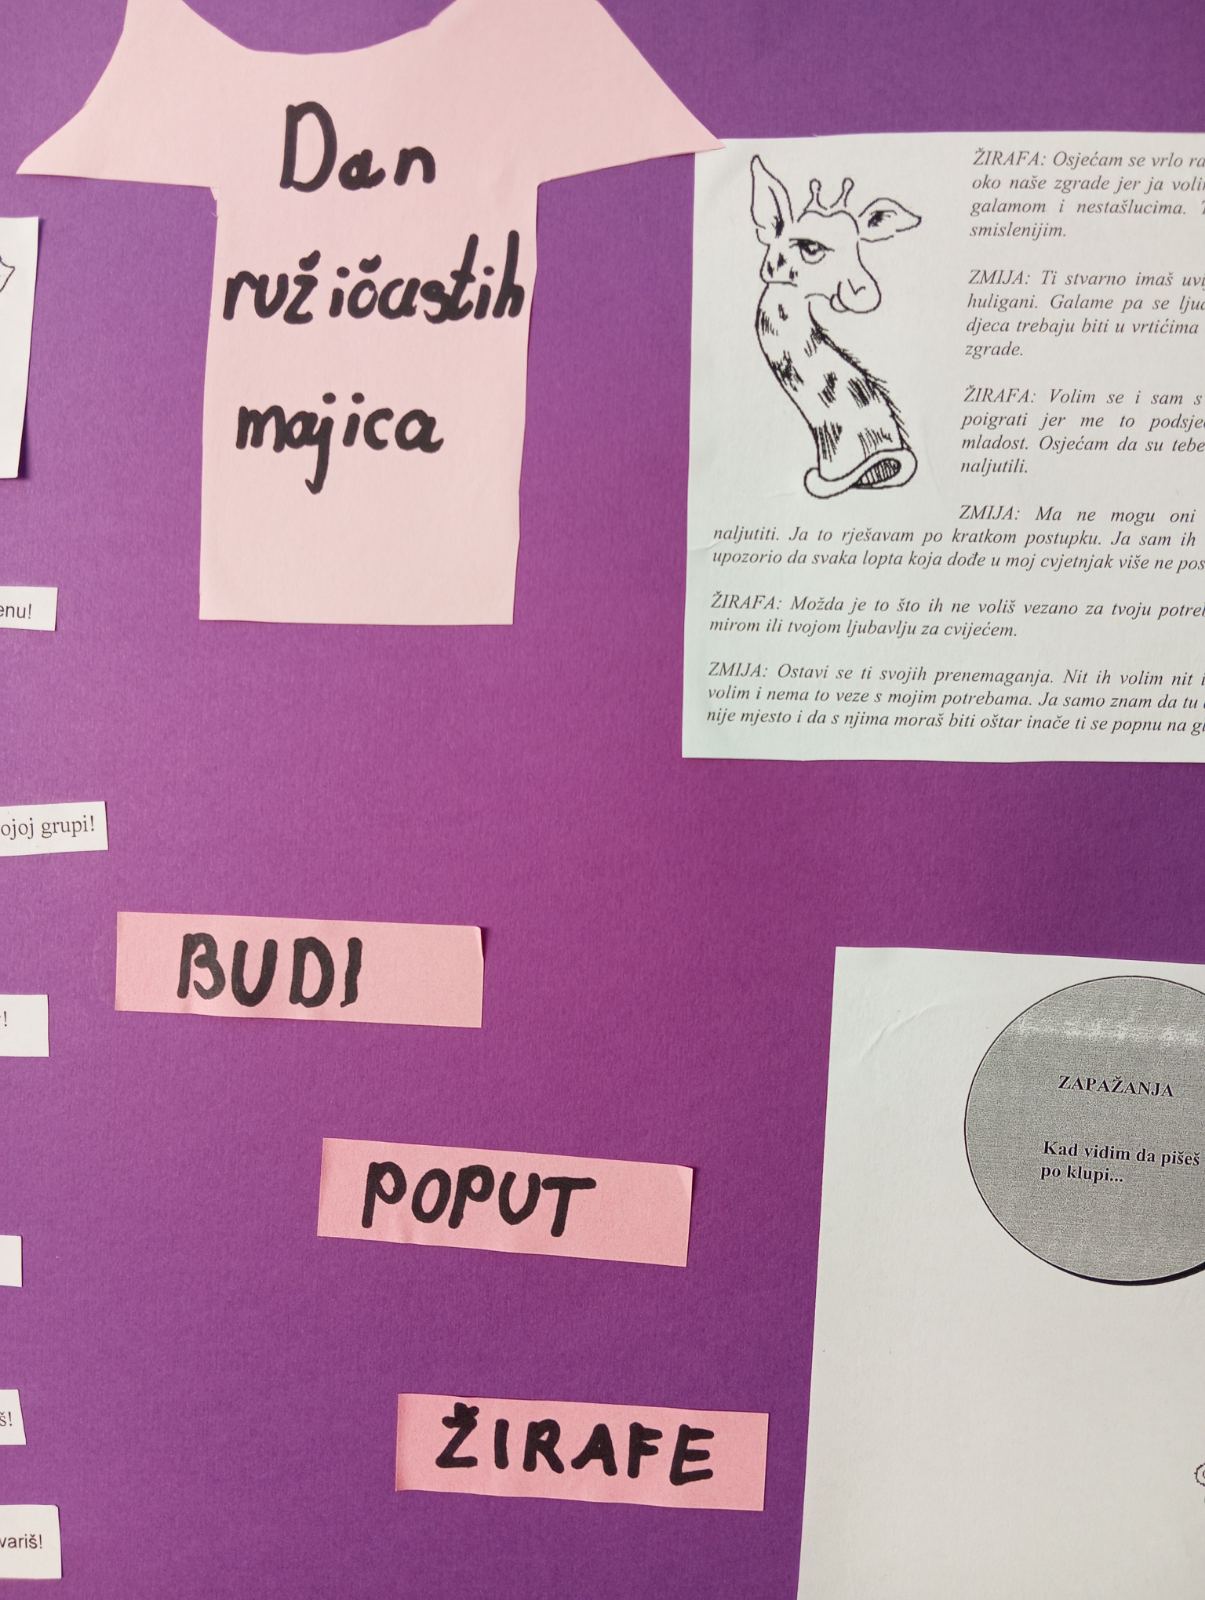 Dan
ružičastih
majica
ŽIRAFA: Osjećam se vrlo
oko naše zgrade jer ja
galamom i nestašlucima.
smislenijim.
ZMIJA: Ti stvarno imaš
huligani. Galame pa se
djeca trebaju biti u vrtićima
zgrade.
ŽIRAFA: Volim se i sam
poigrati jer me to
mladost. Osjećam da su tebe
naljutili.
ZMIJA: Ma ne mogu oni
naljutiti. Ja to rješavam po kratkom postupku. Ja sam ih
upozorio da svaka lopta koja dođe u moj cvjetnjak više ne
ŽIRAFA: Možda je to što ih ne voliš vezano za tvoju
mirom ili tvojom ljubavlju za cvijećem.
ZMIJA: Ostavi se ti svojih prenemaganja. Nit ih volim nit
volim i nema to veze s mojim potrebama. Ja samo znam da tu
nije mjesto i da s njima moraš biti oštar inače ti se popnu na
grupi!
BUDI
POPUT
ŽIRAFE
ZAPAŽANJA
Kad vidim da pišeš
po klupi...